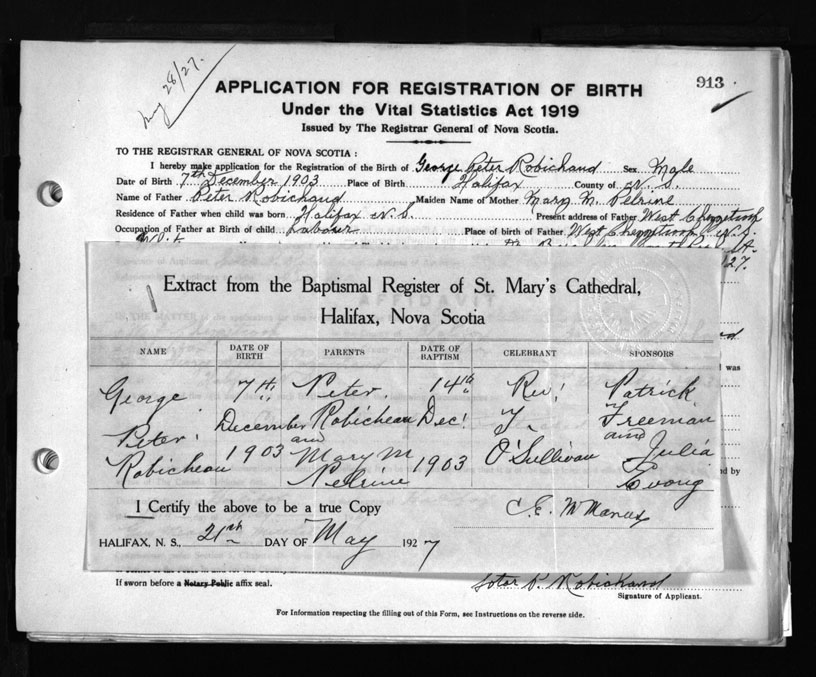 May 28/27.
913
APPLICATION FOR REGISTRATION OF BIRTH
Under the Vital Statistics Act 1919
Issued by The Registrar General of Nova Scotia.
TO THE REGISTRAR GENERAL OF NOVA SCOTIA :
I hereby make application for the Registration of the Birth of George Peter Robichaud Sex Male
Date of Birth 7th December 1903 Place of Birth Halifax County of N. S.
Name of Father Peter Robichaud Maiden Name of Mother Mary M. Pelrine
Residence of Father when child was born Halifax N. S. Present address of Father West
Occupation of Father at Birth of child Labourer Place of birth of Father West N.S.
27.
Extract from the Baptismal Register of St. Mary's Cathedral,
Halifax, Nova Scotia
AFFIDAVIT
NAME DATE OF BIRTH PARENTS DATE OF BAPTISM CELEBRANT SPONSORS
George 7th Peter 14th Rev. Patrick
Peter December Robicheau Dec. Freeman
Robicheau 1903 and Mary M 1903 O'Sullivan and Julia
Pelrine
I Certify the above to be a true Copy
HALIFAX, N. S., 21st DAY OF May 1927
If sworn before a Notary Public affix seal.
Robichaud
Signature of Applicant.
For Information respecting the filling out of this Form, see Instructions on the reverse side.